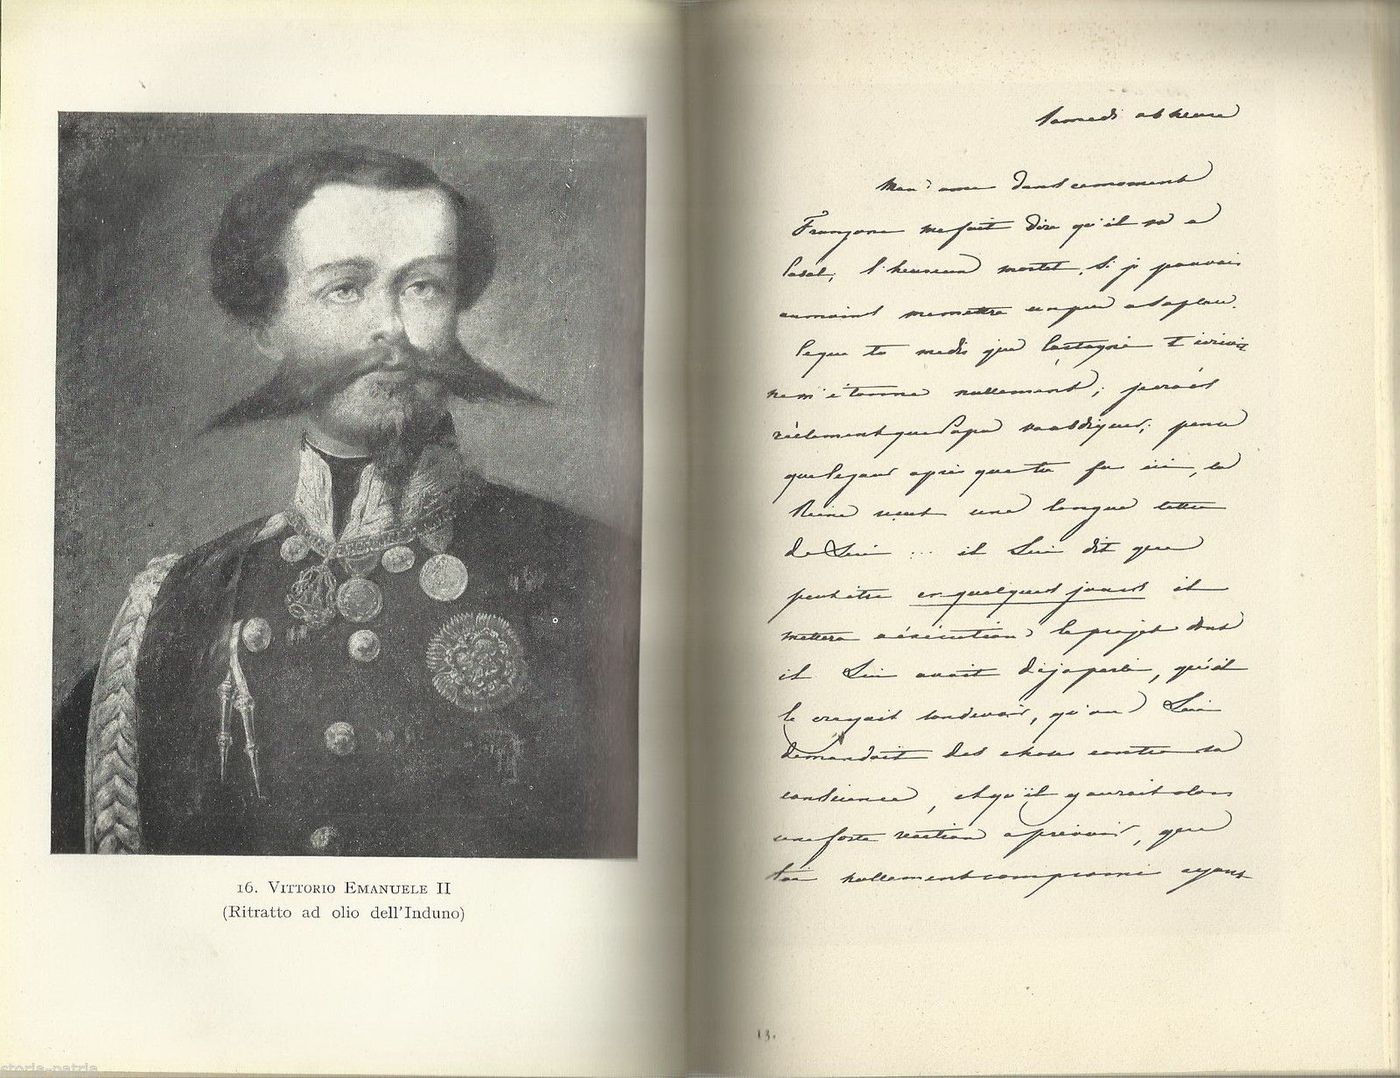 16. VITTORIO EMANUELE II
(Ritratto ad olio dell'Induno)
Samedi a 6 heure
Mon ame dans ce moment
me fait dire qu'il va a
l'heureux mortel, si je pouvais
aumoins me mettre un peu a sa place.
ce que tu me dis que t'écrivait
ne m'étonne nullement;
réelement que Papa va abdiquer; pense
que le jour après que tu fu ici, la
Reine reçut une longue lettre
de Lui ... il Lui dit que
peut être en quelques jours il
mettera a éxécution le projet dont
il Lui avait déja parlé, qu'il
le croyait son devoir, qu'on Lui
demandait des choses contre sa
conscience, et qu'il y aurait alors
une forte réaction a prévoir, que
toi nullement compromi ayant
13.
storia-patria